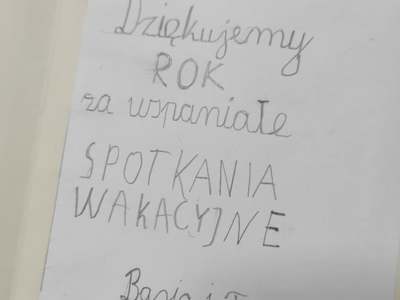 Dziękujemy
ROK
za wspaniałe
SPOTKANIA
WAKACYJNE
Basia i